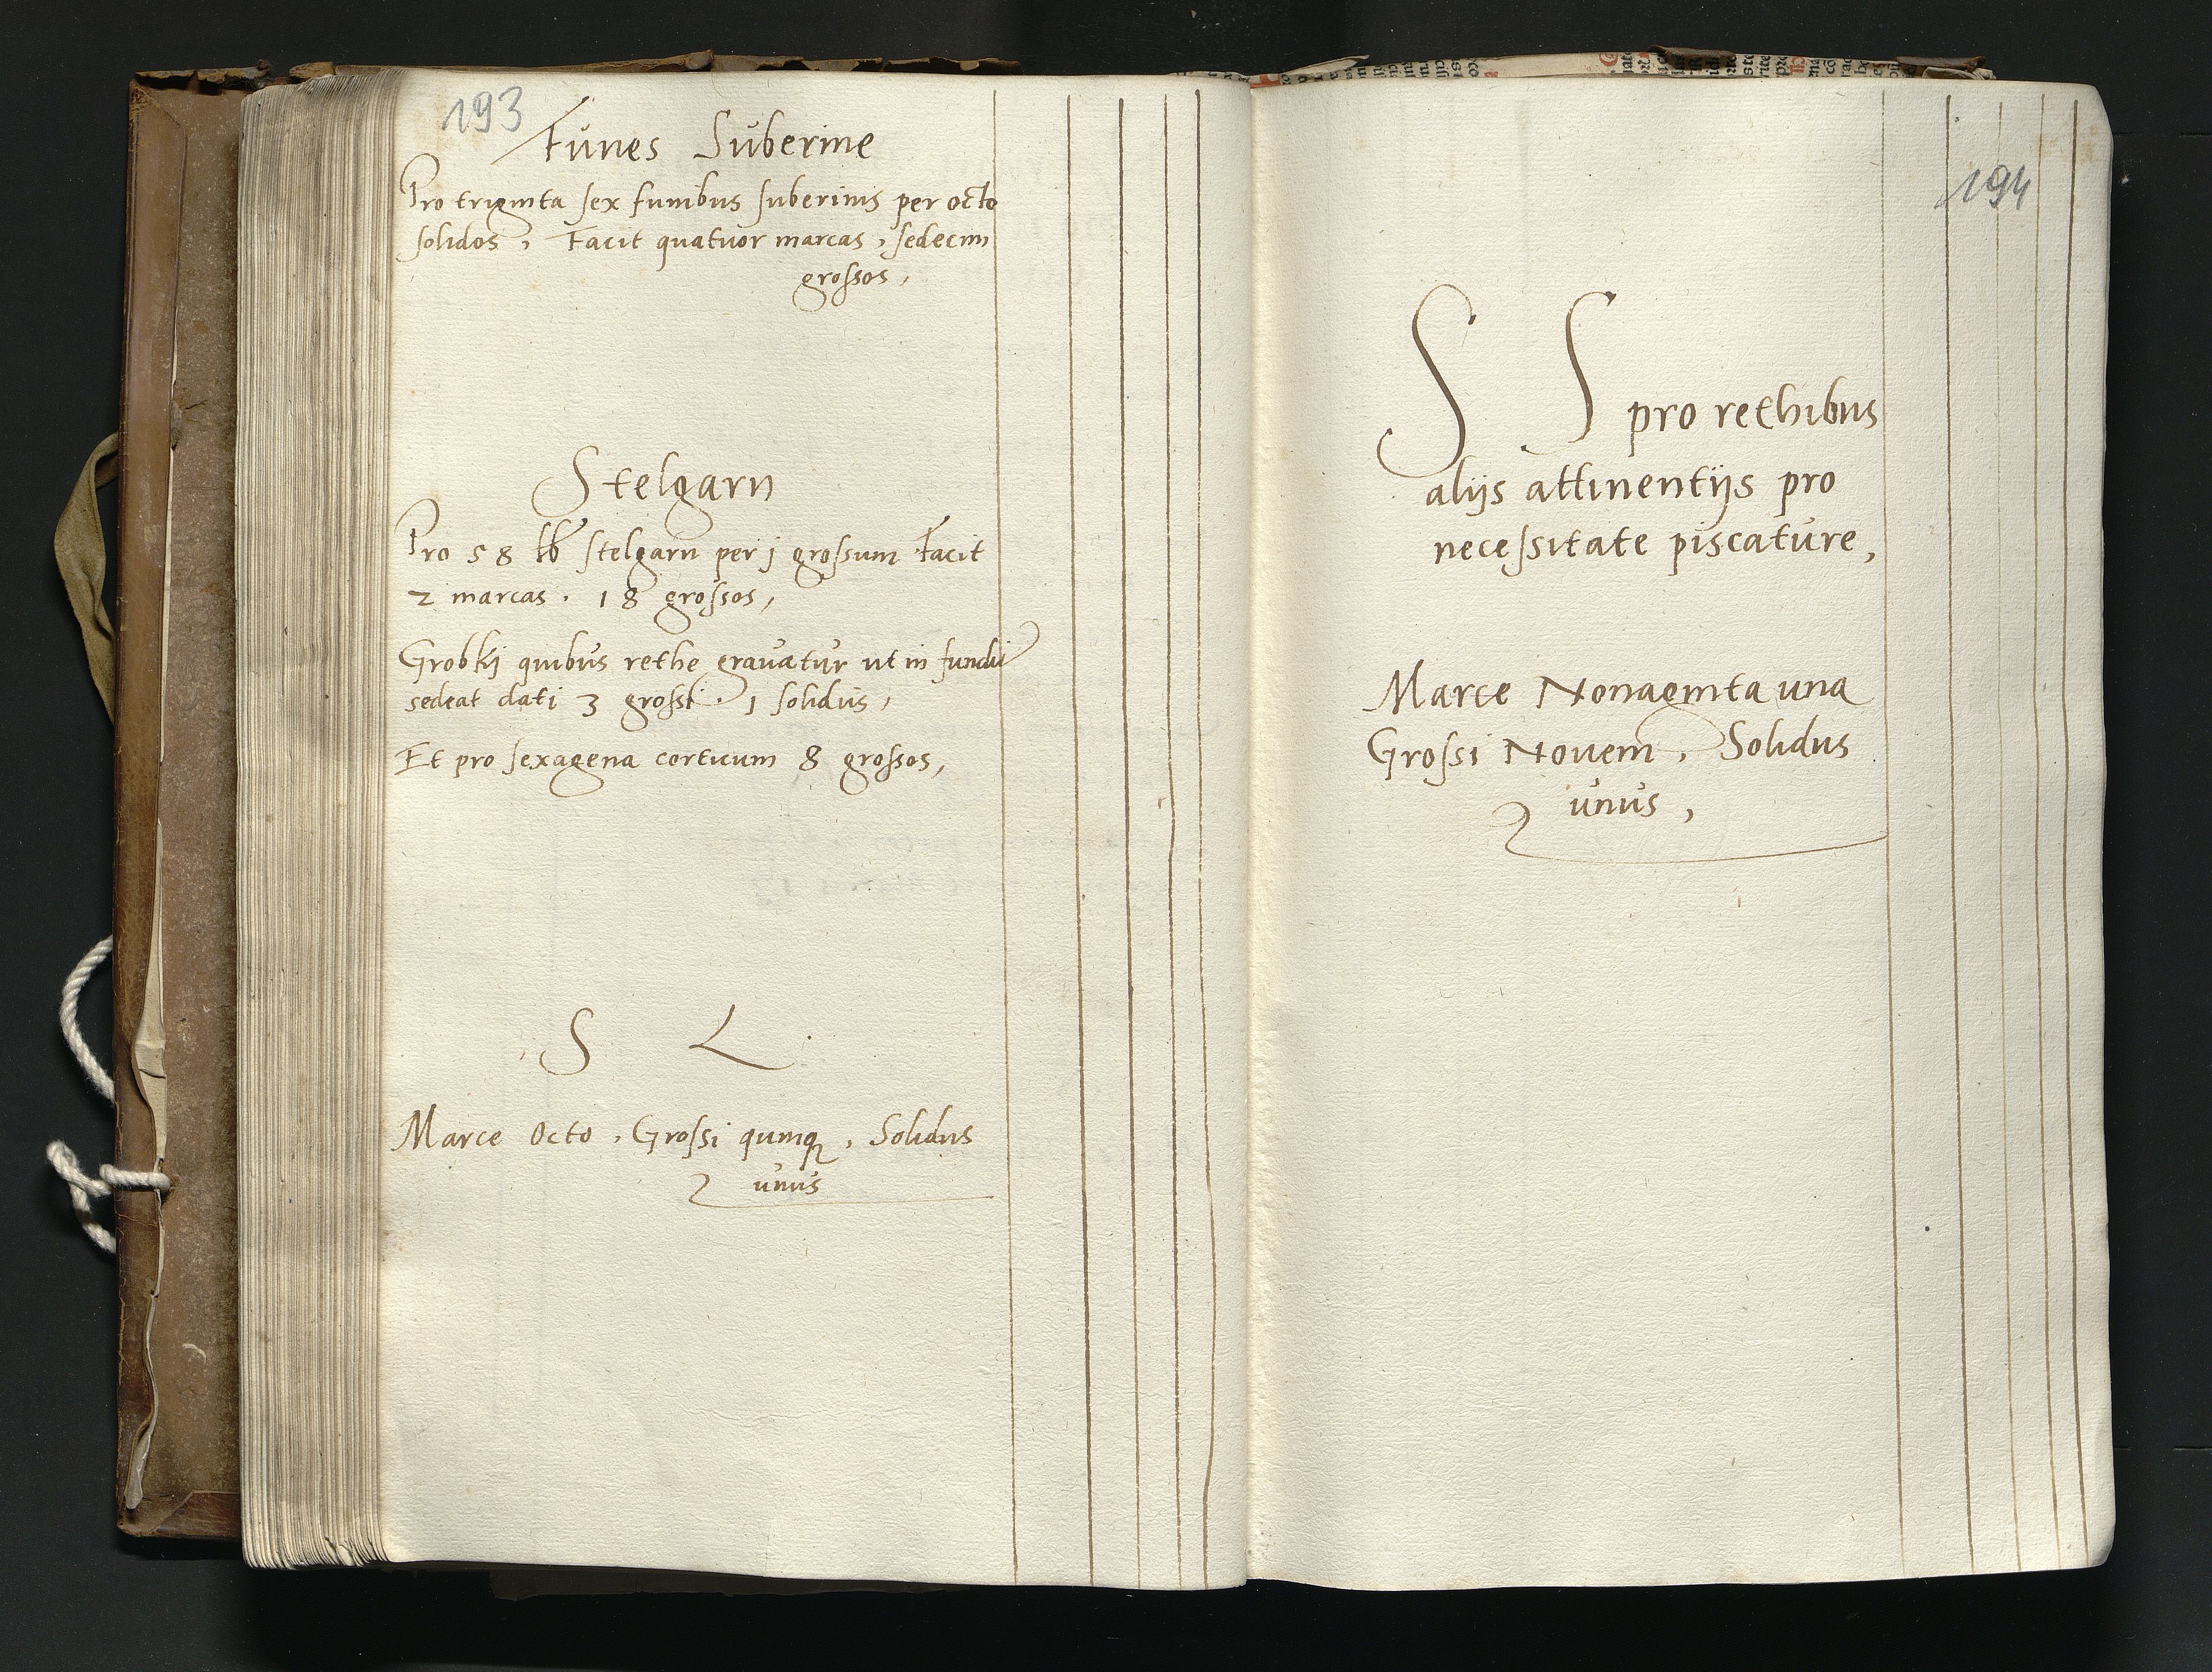 193
Funes Suberine
Pro triginta sex funibus suberinis per octo
solidos, Facit quatuor marcas, sedecim
grossos,
Stelgarn
Pro 58 lb stelgarn per j grossum Facit
2 marcas. 18 grossos,
Grobkj quibus rethe gravatur ut in fundu
sedeat dati 3 grossi. 1 solidus,
Et pro sexagena corticum 8 grossos,
S L
Marce Octo, Grossi quinq, Solidus
unus
194
S S pro rethibus
alijs attinentijs pro
necessitate piscature,
Marce Nonaginta una
Grossi Novem, Solidus
unus,